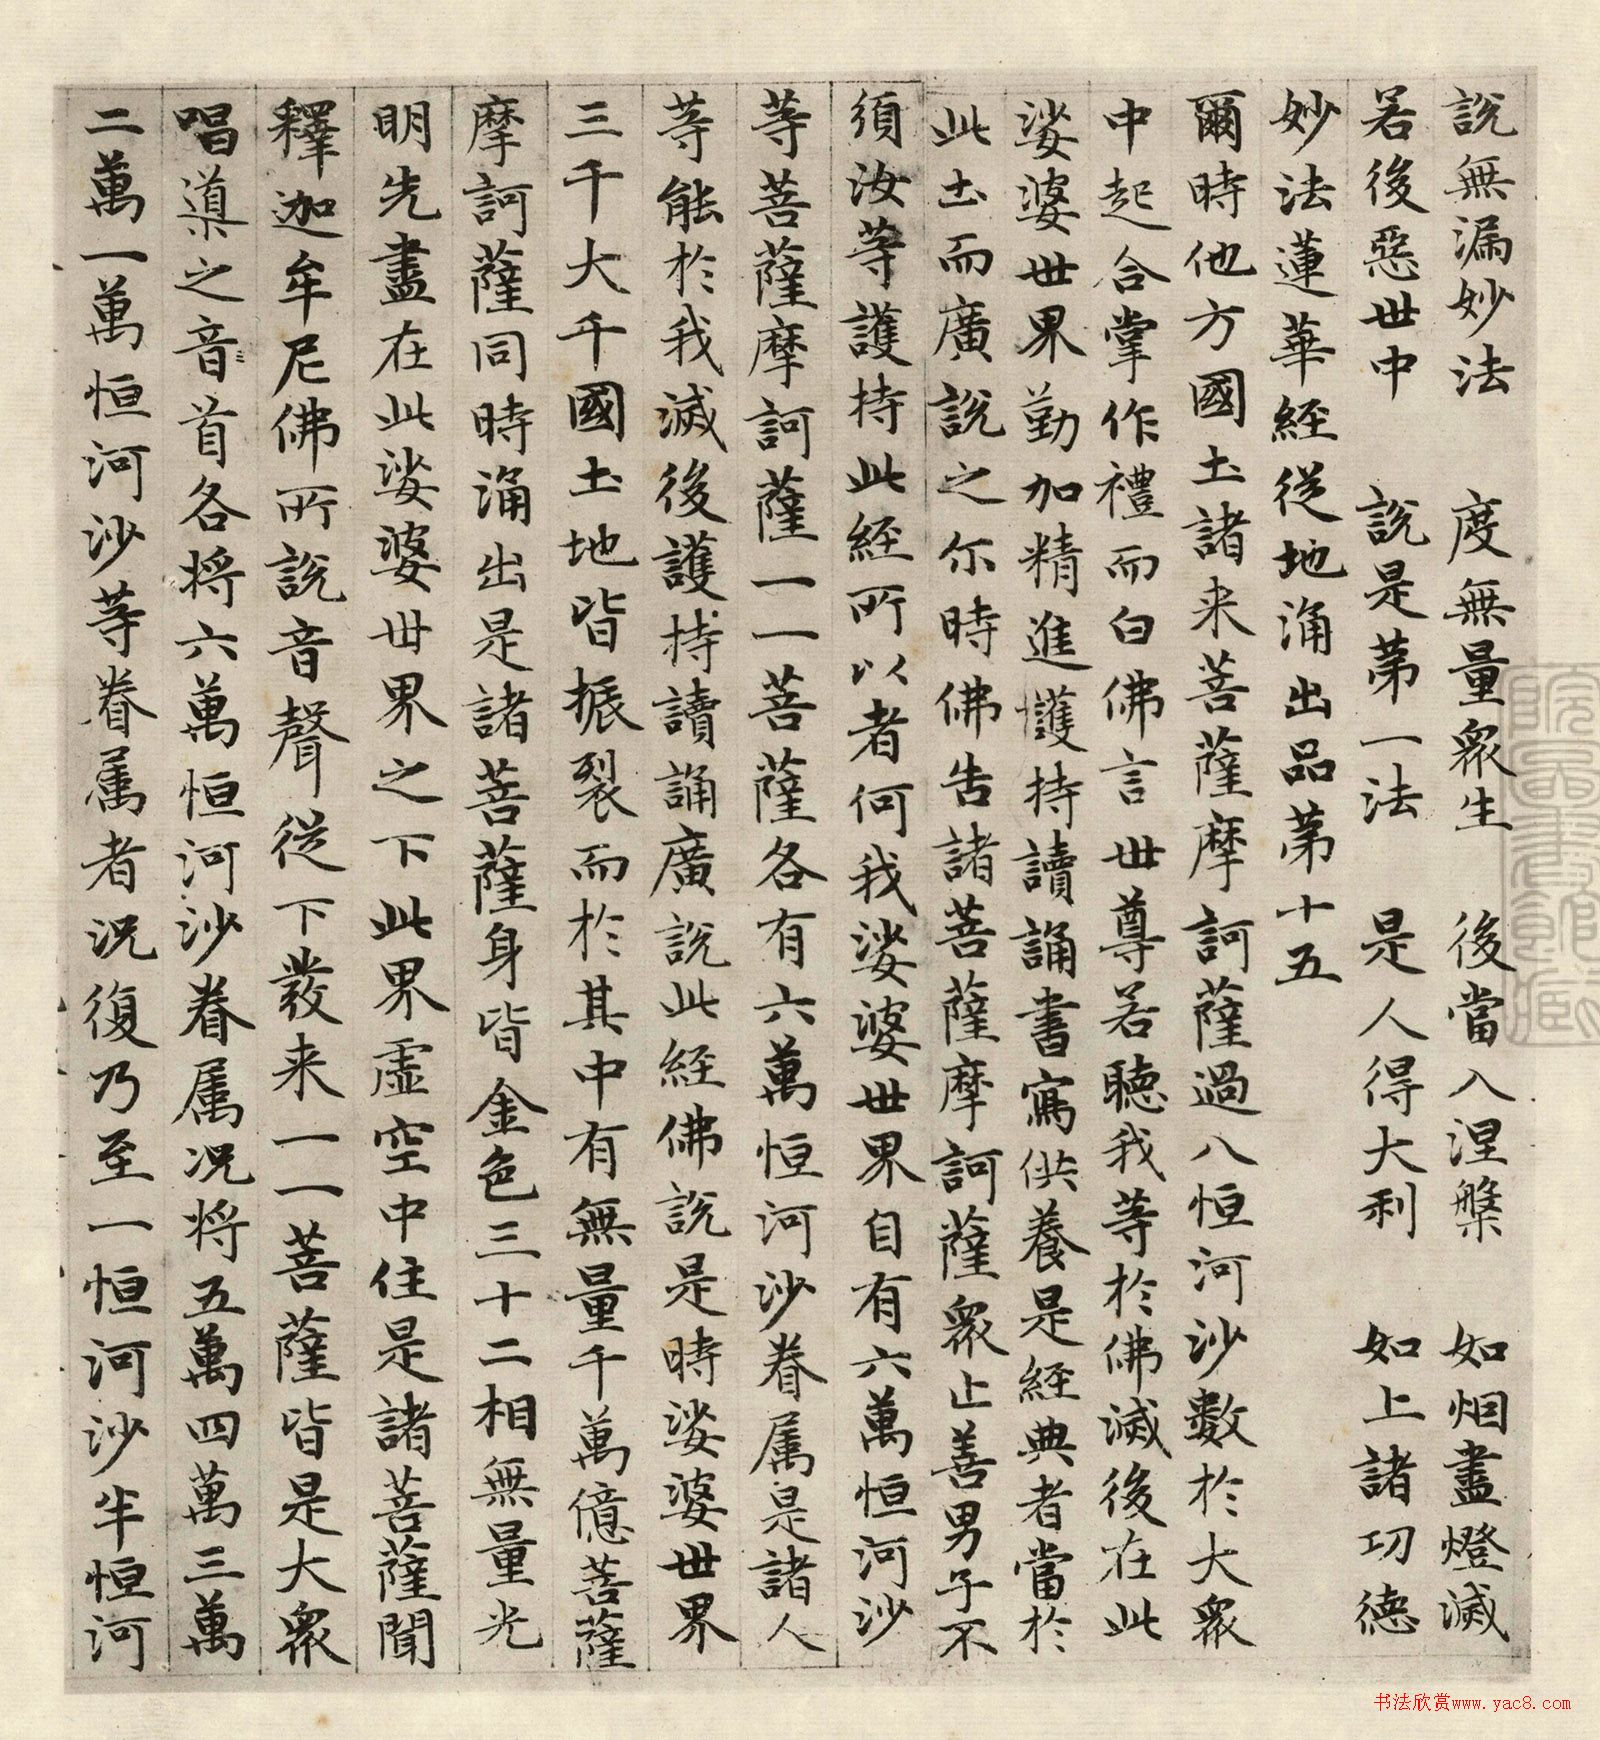 說無漏妙法　度無量眾生　後當入涅槃　如烟盡燈滅
若後惡世中　說是第一法　是人得大利　如上諸功德
妙法蓮華經從地涌出品第十五
爾時他方國土諸来菩薩摩訶薩過八恒河沙數於大眾
中起合掌作禮而白佛言世尊若聽我等於佛滅後在此
娑婆世界勤加精進護持讀誦書寫供養是經典者當於
此土而廣說之尒時佛告諸菩薩摩訶薩眾止善男子不
須汝等護持此經所以者何我娑婆世界自有六萬恒河沙
等菩薩摩訶薩一一菩薩各有六萬恒河沙眷属是諸人
等能於我滅後護持讀誦廣說此經佛說是時娑婆世界
三千大千國土地皆振裂而於其中有無量千萬億菩薩
摩訶薩同時涌出是諸菩薩身皆金色三十二相無量光
明先盡在此娑婆世界之下此界虛空中住是諸菩薩聞
釋迦牟尼佛所說音聲從下發来一一菩薩皆是大眾
唱導之音首各将六萬恒河沙眷属况将五萬四萬三萬
二萬一萬恒河沙等眷属者况復乃至一恒河沙半恒河
书法欣赏www.yac8.com